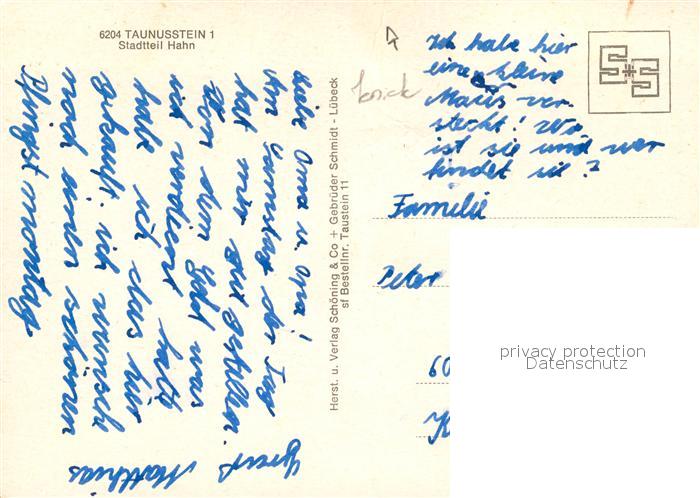 6204 TAUNUSSTEIN 1
Stadtteil Hahn
Liebe Oma u. Opa!
Am Samstag der Tag
hat mir gut gefallen.
Von dem Geld was
ich verdient hatte
habe ich das hier
gekauft. ich wünsche
noch einen schönen
Pfingstmontag
Gruß
Matthias
Herst. u. Verlag Schöning & Co + Gebrüder Schmidt - Lübeck
sf Bestellnr. Taustein 11
Ich habe hier
eine kleine
Maus ver-
steckt! Wo
ist sie und wer
findet sie?
Familie
Peter
60
K
privacy protection
Datenschutz